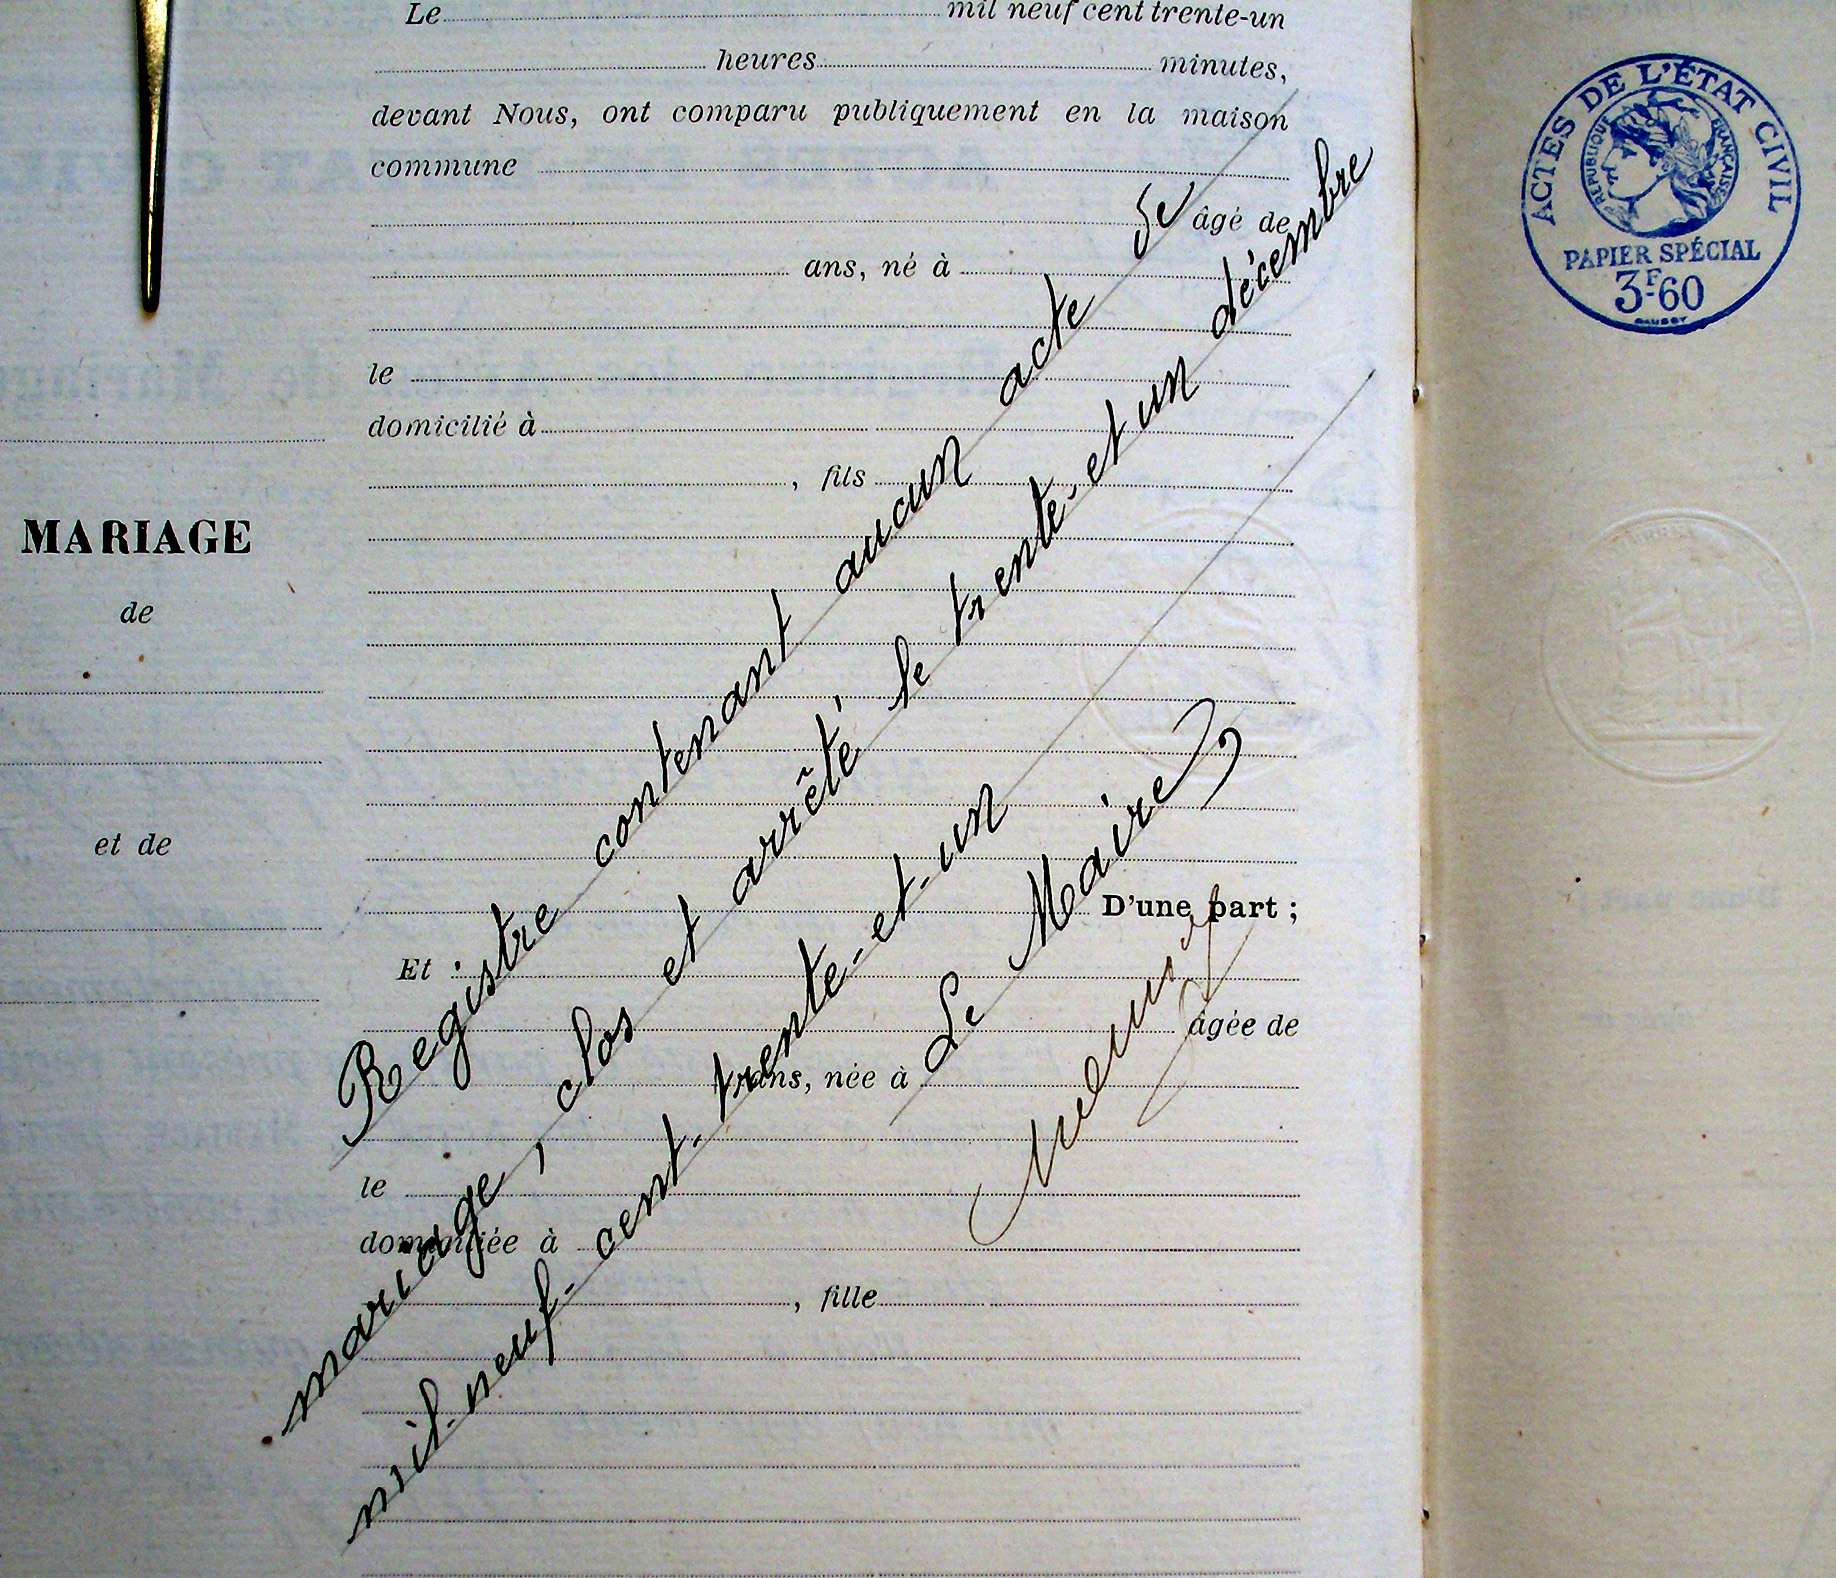 Le mil neuf cent trente-un
heures minutes,
devant Nous, ont comparu publiquement en la maison
commune
âgé de
ans, né à
le
domicilié à
, fils
D'une part ;
Et
âgée de
ans, née à
le
domiciliée à
, fille
MARIAGE
de
et de
Registre contenant aucun acte de
mariage, clos et arrêté, le trente-et un décembre
mil-neuf-cent-trente-et-un
Le Maire
ACTES DE L'ÉTAT CIVIL
RÉPUBLIQUE FRANÇAISE
PAPIER SPÉCIAL
3F60